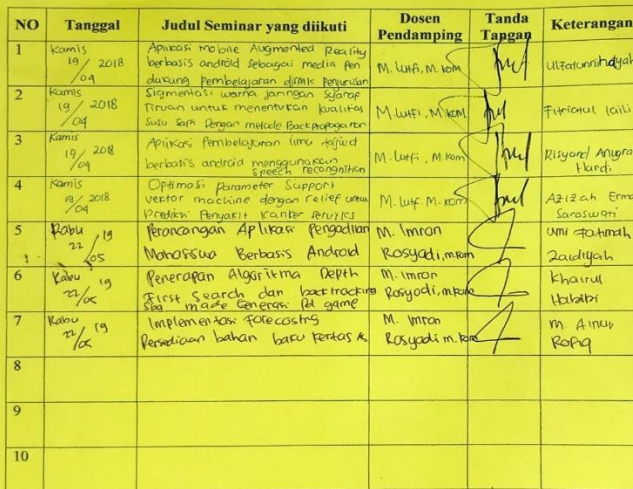 NO Tanggal Judul Seminar yang diikuti Dosen Pendamping Tanda Tangan Keterangan
1 Kamis 19/04 2018 Aplikasi mobile Augmented Reality
berbasis android sebagai media pen
dukung Pembelajaran
M. Lutfi, M. Kom
2 Kamis 19/04 2018 Sigmentasi warna jaringan syaraf
Tiruan untuk menentukan kualitas
Susu sapi Dengan metode Backpropagation
M. Lutfi, M. Kom
Fitriatul laili
3 Kamis 19/04 2018 Aplikasi Pembelajaran ilmu tajwid
berbasis android menggunakan
speech recongnition
M. Lutfi, M. Kom
Risyand Anugra
Hardi
4 Kamis 19/04 2018 Optimasi parameter Support
vektor machine dengan relief untuk
Prediksi Penyakit Kanker Serviks
M. Lutfi. M. Kom
Azizah Erma
Saraswati
5 Rabu 22/05 19 Perancangan Aplikasi Pengadilan
Mahasiswa Berbasis Android
M. Imron
Rosyadi, m.kom
Umi Fatimah
Zaidiyah
6 Rabu 22/05 19 Penerapan Algoritma Depth
First Search dan backtracking
Sbg made Generasi Pd game
M. Imron
Rosyadi, m.kom
Khairul
Habibi
7 Rabu 22/05 19 Implementasi Forecasting
Persediaan bahan baku kertas
M. Imron
Rosyadi m. kom
M. Ainur
Rofiq
8
9
10